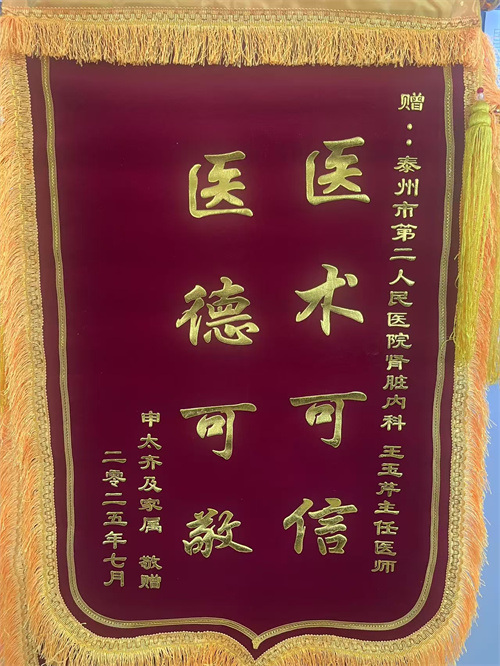 赠：泰州市第二人民医院肾脏内科 王玉芹主任医师
医术可信
医德可敬
申太齐及家属 敬赠
二零二五年七月